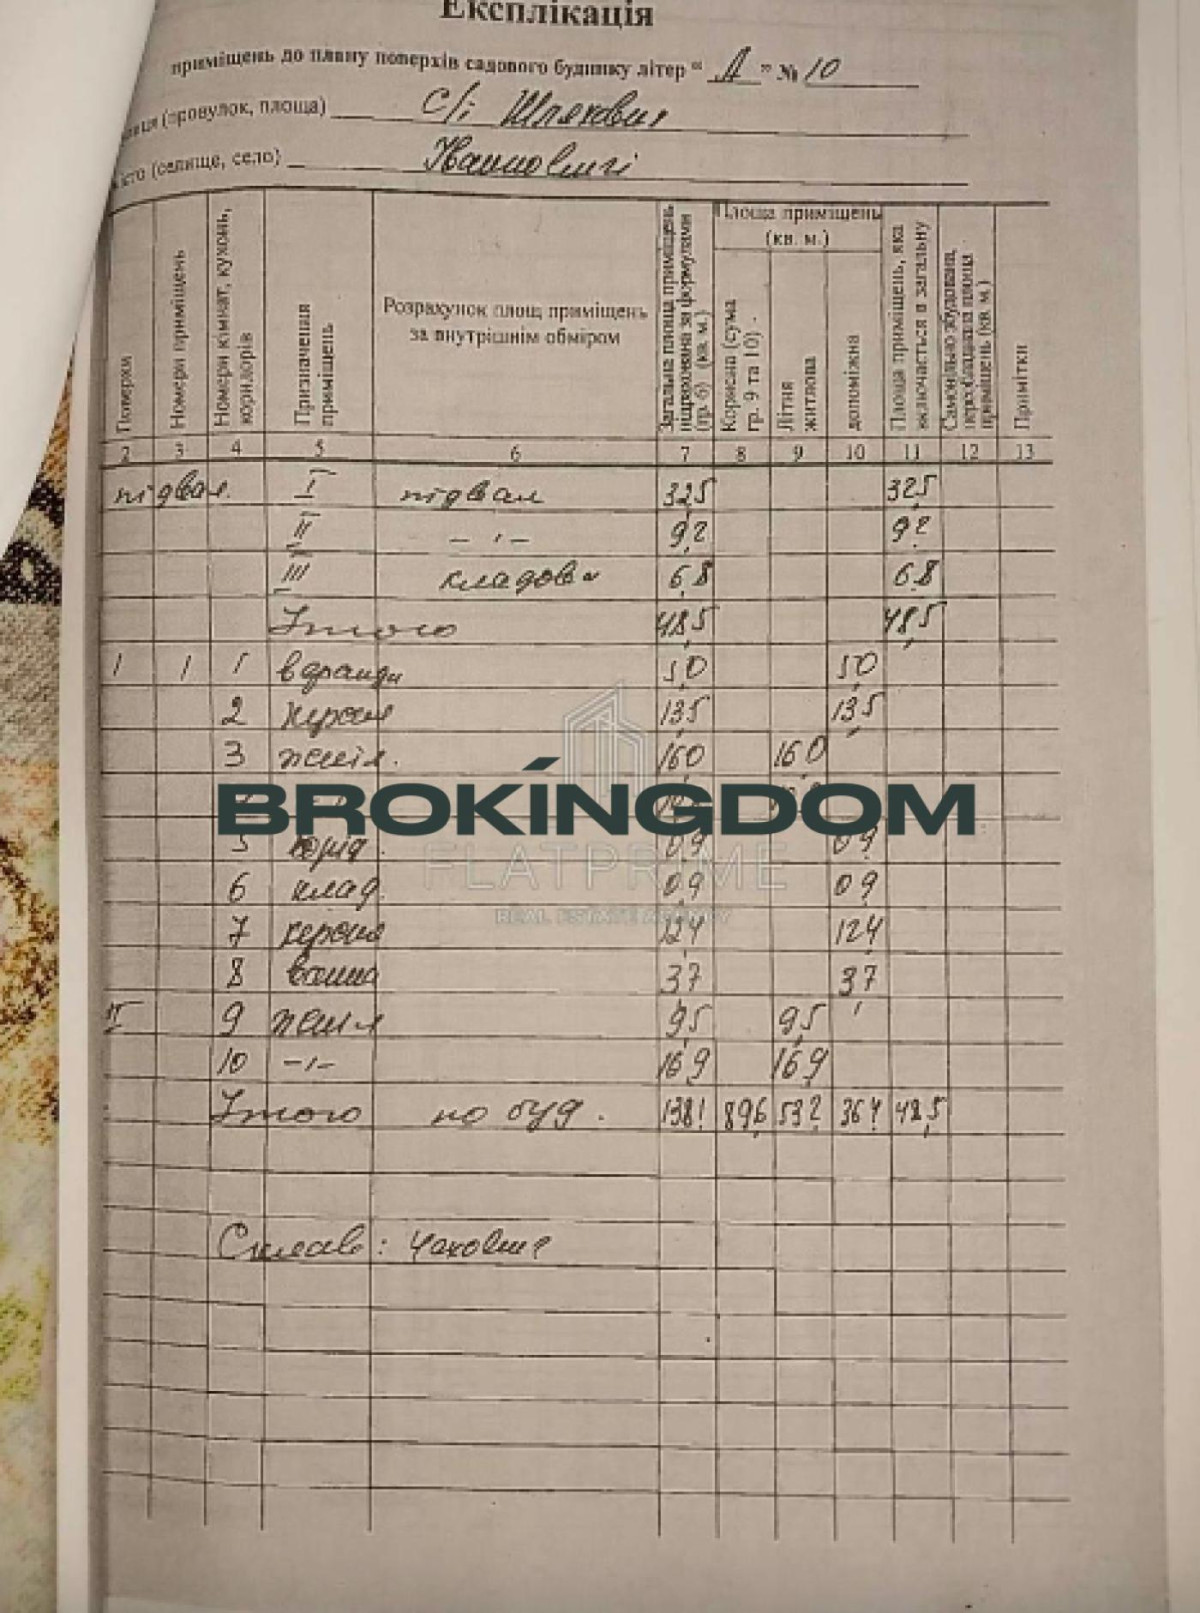 Експлікація
приміщень до плану поверхів садового будинку літер " А " № 10
(провулок, площа) с/т Шляховик
місто (селище, село)
Поверхи
Номери приміщень
Номери кімнат, кухонь, коридорів
Призначення приміщень
Розрахунок площ приміщень за внутрішнім обміром
Загальна площа приміщень нарахована за формулами (гр. 6) (кв. м.)
Площа приміщень (кв. м.)
Корисна (сума гр. 9 та 10)
Літня житлова
допоміжна
Площа приміщень, яка включається в загальну
Самовільно збудована, переобладнана площа приміщень (кв. м.)
Примітки
2 3 4 5 6 7 8 9 10 11 12 13
підвал. I підвал 32,5 32,5
II – " – 9,2 9,2
III кладова 6,8 6,8
Итого 48,5 48,5
1 1 1 веранда 5,0 5,0
2 кухня 13,5 13,5
3 житл. 16,0 16,0
BROKINGDOM
5 корид. 0,9 0,9
FLATPRIME
6 клад. 0,9 0,9
REAL ESTATE AGENCY
7 кухня 12,4 12,4
8 ванна 3,7 3,7
II 9 житл 9,5 9,5
10 –"– 16,9 16,9
Итого по буд. 138,1 89,6 53,2 36,4 48,5
Склав: